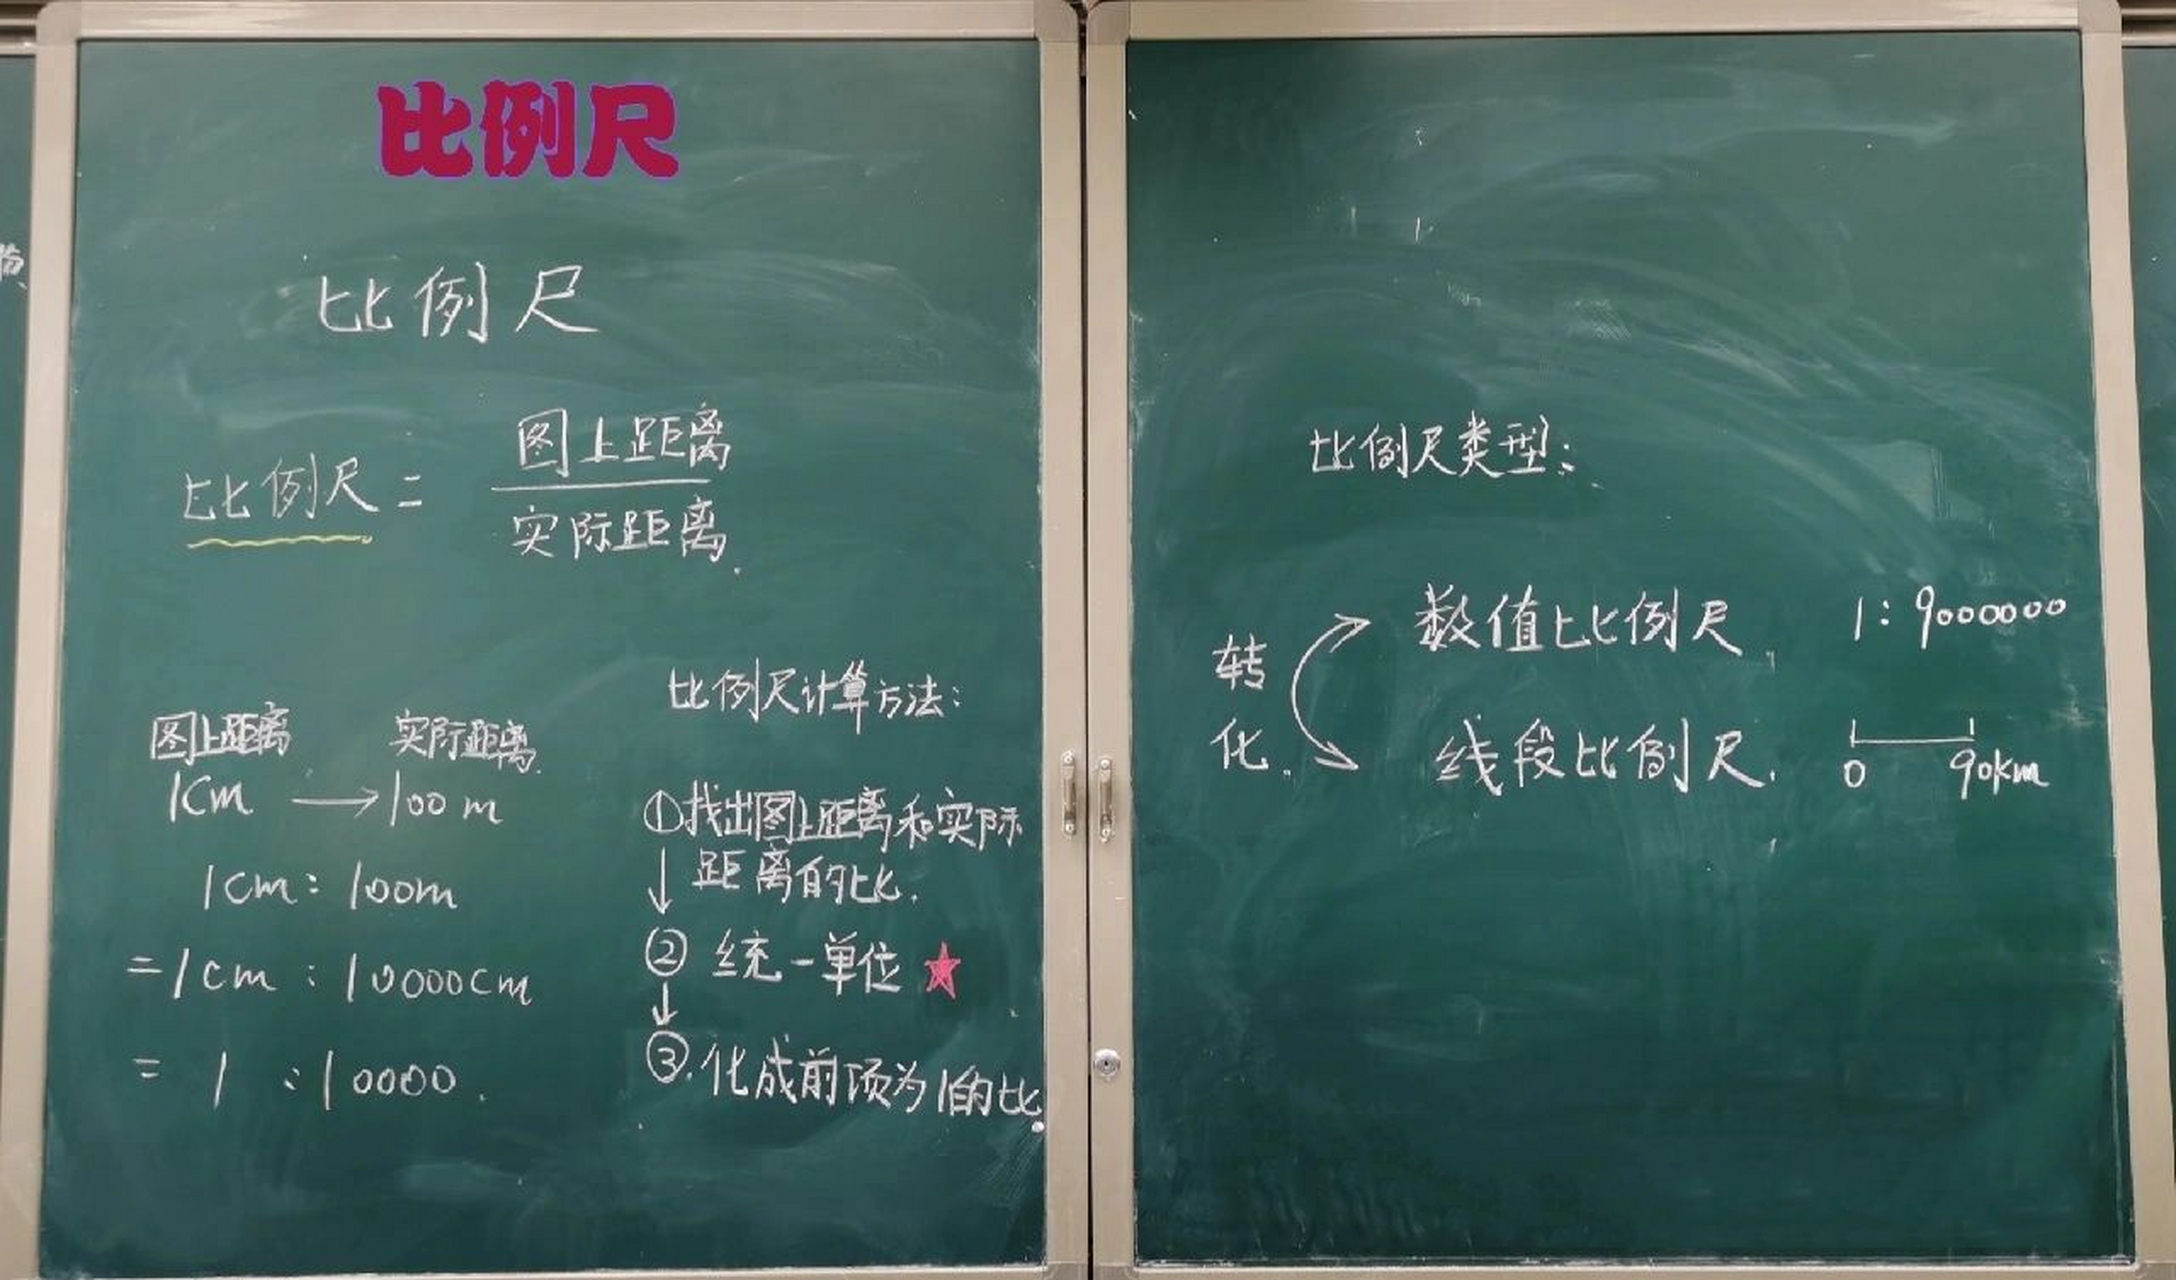 比例尺
比例尺
比例尺 = 图上距离
实际距离.
图上距离 实际距离.
1cm → 100m
1cm : 100m
= 1cm : 10000cm
= 1 : 10000.
比例尺计算方法:
①找出图上距离和实际
↓ 距离的比.
② 统一单位 ★
↓
③.化成前项为1的比
比例尺类型:
转化.
数值比例尺 1:9000000
线段比例尺. 0 90km